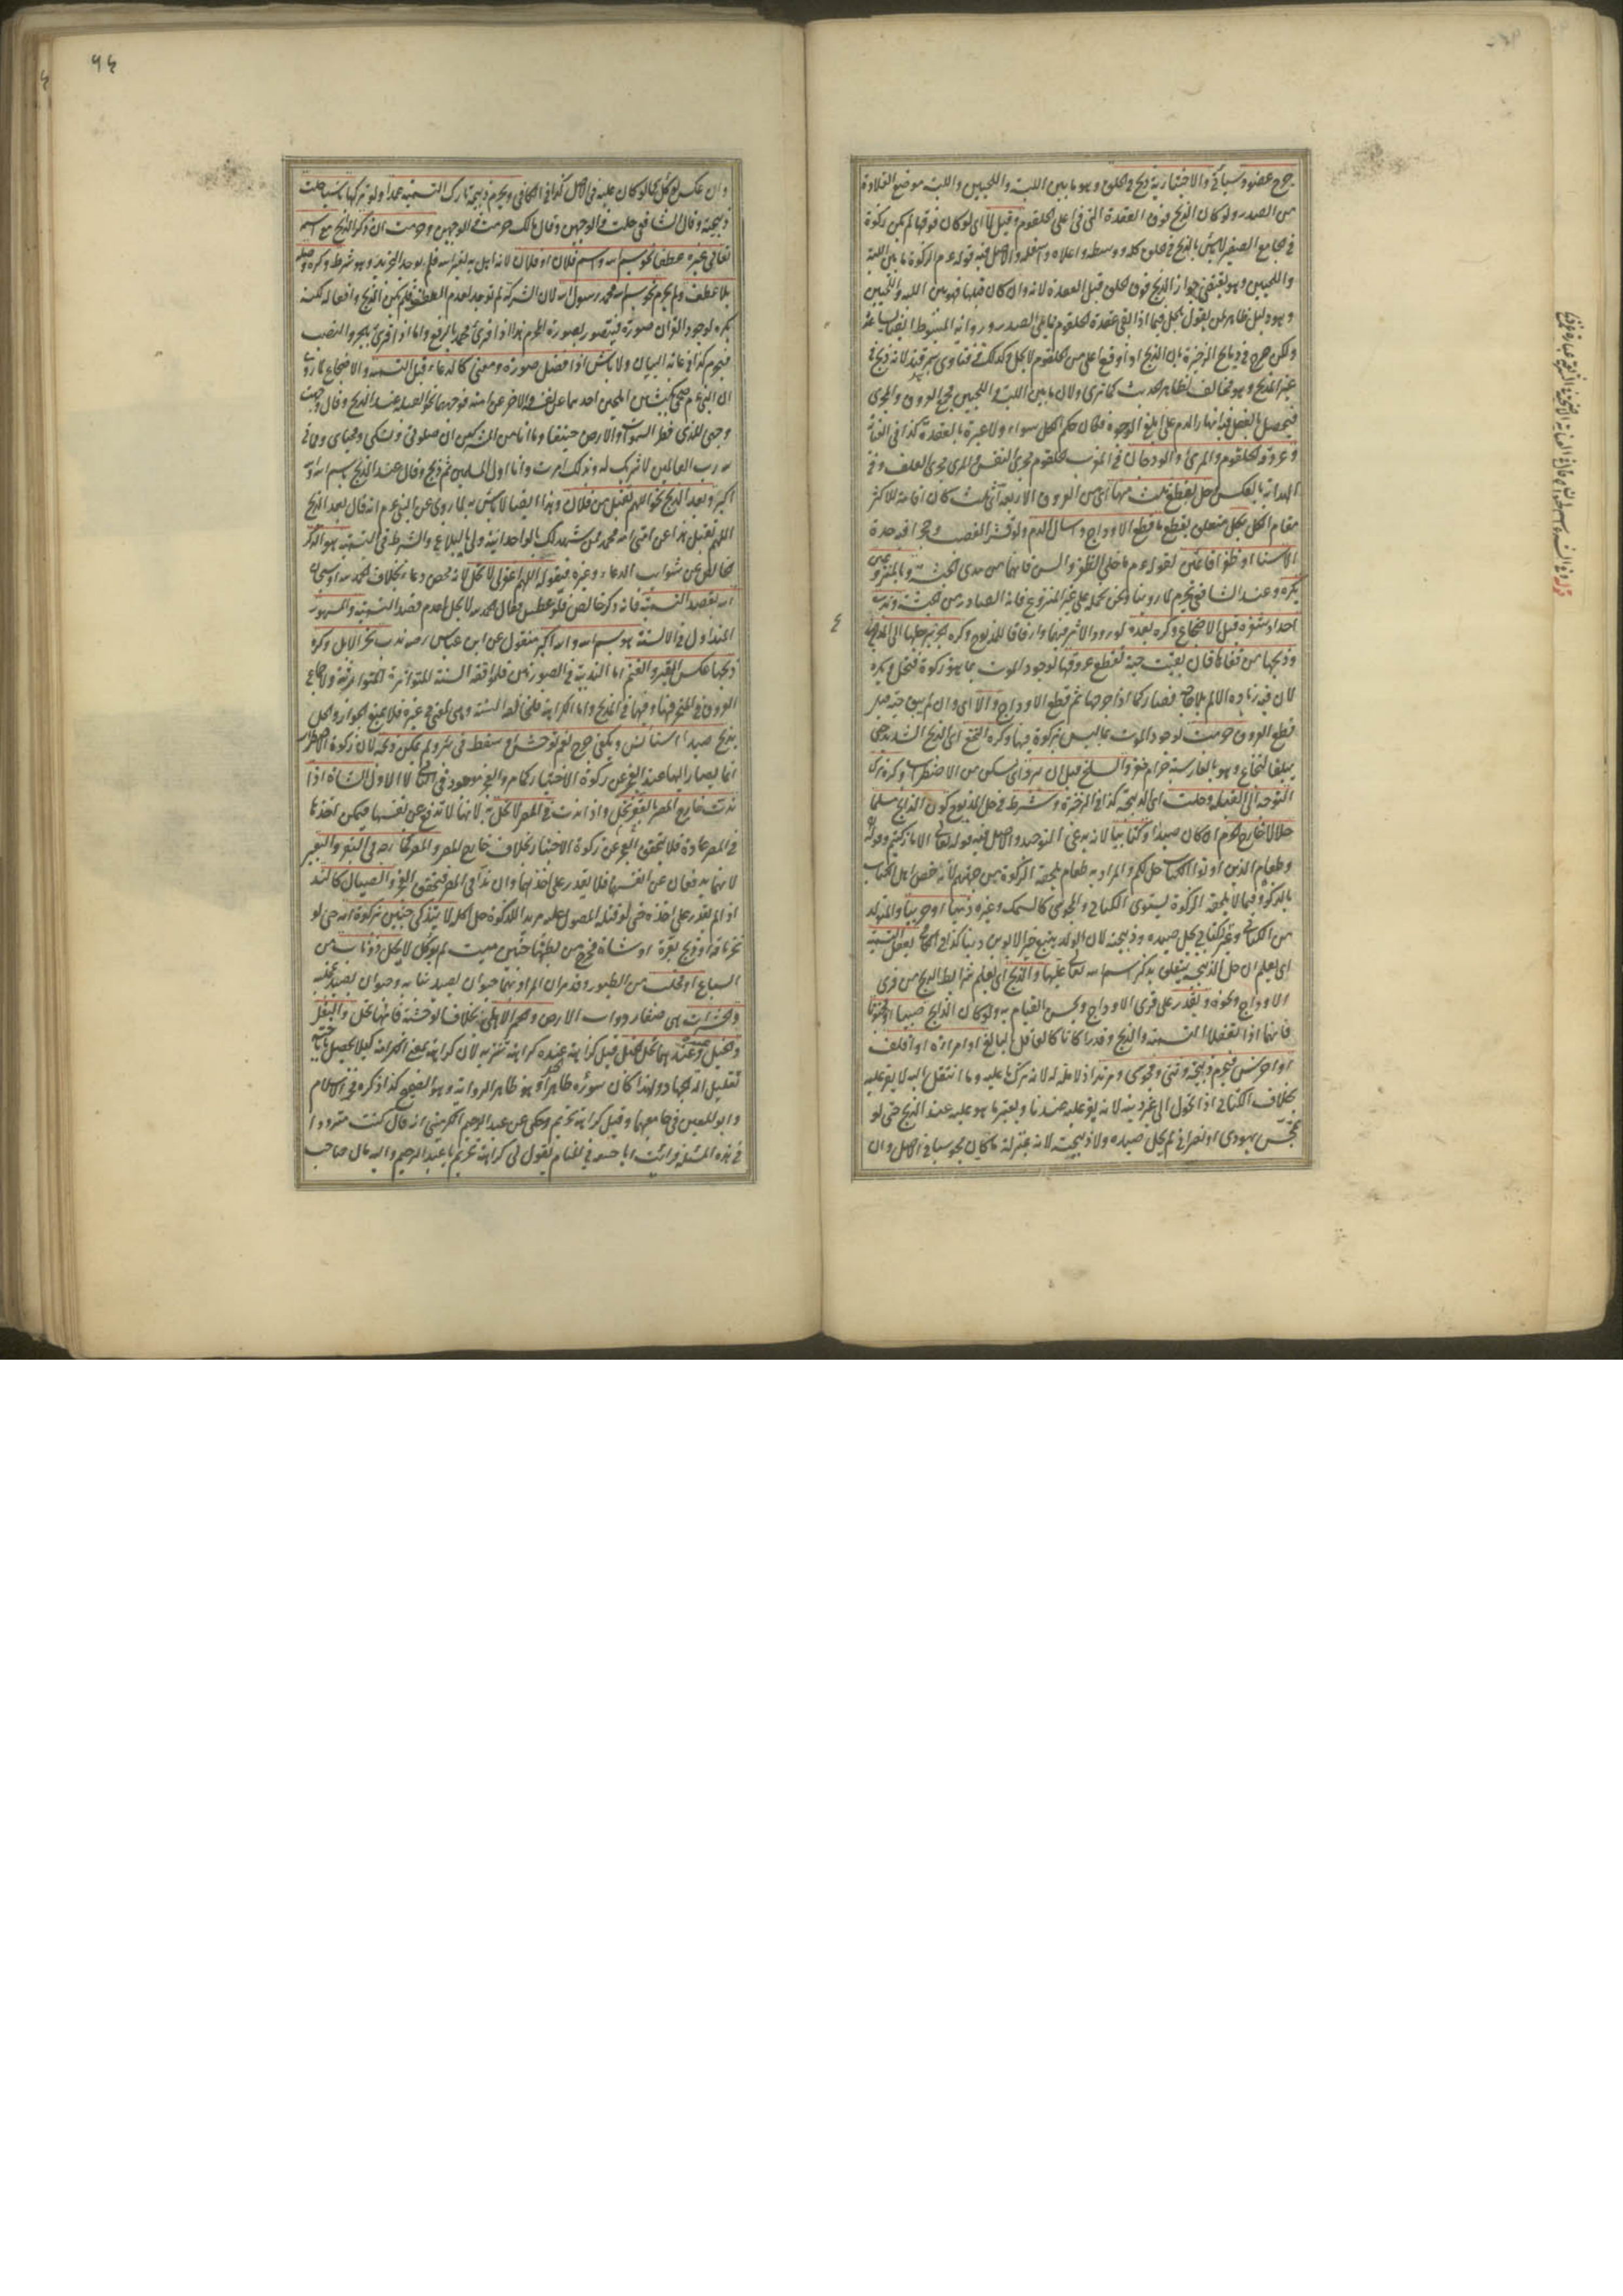 جرح عضو وسيأتي والاختيارية ذبح في الحلق وهو ما بين اللبة واللحيين واللبة موضع القلادة
من الصدر ولو كان الذبح فوق العقدة التي في اعلى الحلقوم وقيل لا اي لو كان فوقها لم يكن زكوة
في جامع الصغير لا بأس بالذبح في الحلق كله ووسطه واعلاه واسفله والاصل فيه قوله عم الزكوة ما بين اللبة
واللحيين وهو يقتضي جواز الذبح فوق الحلق قبل العقدة لانه وان كان قبلها فهو بين اللبة واللحيين
وهو دليل ظاهر لمن يقول بحل فيما اذا بقي عقدة الحلقوم مما يلي الصدر ورواية المبسوط ايضا
ولكن صرح في ذبائح الذخيرة بان الذبح اذا وقع اعلى من الحلقوم لا يحل وكذلك في فتاوى سمرقند لانه ذبح في
غير المذبح وهو مخالف لظاهر الحديث كما ترى ولان ما بين اللبة واللحيين مجمع العروق والمجرى
فيحصل بالفعل فيه انهار الدم على ابلغ الوجوه فكان حكم الكل سواء ولا عبرة بالعقدة كذا في العناية
وعروقه الحلقوم والمرئ والودجان في المغرب الحلقوم مجرى النفس والمرى مجرى العلف وفي
الهداية بالعكس وحل بقطع ثلث منها اي من العروق الاربعة اي ثلث كان اقامة للاكثر
مقام الكل يحل متعلق بقطع ما قطع الاوداج واسال الدم ولو قشر القصب وحجرا فيه حدة
الا سنا او ظفرا قائمتين لقوله عم ما خلى الظفر والسن فانهما من مدى الحبشة وبالمنزوعين
يكره وعند الشافعي يحرم لما روينا ونحن نحمله على غير المنزوع فانه الصادر من الحبشة وندب
احداد شفرته قبل الاضجاع وكره بعده لورود الاثر فيهما وارفاقا للمذبوح وكره جرها برجلها الى المذبح
وذبحها من قفاها فان بقيت حية تقطع عروقها لوجود الموت بما هو زكوة فتحل ويكره
لان فيه زيادة الالم بلا حاجة فصار كما اذا جرحها ثم قطع الاوداج والا اي وان لم يبق حية قبل
قطع العروق حرمت لوجود الموت بما ليس بزكوة فيها وكره النخع اي الذبح الشديد حتى
يبلغ النخاع وهو بالفارسية حرام مغز والسلخ قبل ان يبرد اي يسكن من الاضطراب وكره ترك
التوجه الى القبلة وحلت اي الذبيحة كذا في الذخيرة وشرط في حل المذبوح كون الذابح مسلما
حلالا خارج الحرم ان كان صيدا او كتابيا لانه يدعي التوحيد والاصل فيه قوله تعالى الا ما زكيتم وقوله
وطعام الذين اوتوا الكتاب حل لكم والمراد به طعام يلحقه الزكوة من جهتهم لانه خص اهل الكتاب
بالذكر وفيما لا يلحقه الزكوة يستوي الكتابي والمجوسي كالسمك وغيره ذميا او حربيا والمتولد
من الكتابي وغير كتابي يحل صيده وذبيحته لان الولد يتبع خير الابوين دينا كذا في الكافي يعقل التسمية
اي يعلم ان حل الذبيحة يتعلق بذكر اسم الله تعالى عليها والذبح اي يعلم شرائط الذبح من فري
الاوداج ونحوه ويقدر على فري الاوداج ويحسن القيام به ولو كان الذابح صبيا او مجنونا
فانهما اذا تعقلا التسمية والذبح وقدرا كانا كالعاقل البالغ او امرأة او اقلف
او اخرس فيحرم ذبيحة وثني ومجوسي ومرتد اذ لا ملة له لانه ترك ما عليه وما انتقل اليه لا يقر عليه
بخلاف الكتابي اذا تحول الى غير دينه لانه يقر عليه عندنا ويعتبر ما هو عليه عند الذبح حتى لو
تمجس يهودي او نصراني لم يحل صيده ولا ذبيحته لانه بمنزلة ما كان مجوسيا في الاصل وان
٩٤
وان عكس يؤكل كما لو كان عليه في الاصل كذا في الكافي ويحرم ذبيحة تارك التسمية عمدا ولو تركها ناسيا حلت
ذبيحته وقال الشافعي حلت في الوجهين وقال مالك حرمت في الوجهين وحرمت ان ذكر الذابح مع اسم
تعالى غيره عطفا نحو بسم الله واسم فلان او فلان لانه اهل به لغير الله فلم يوجد التجريد وهو شرط وكره وصله
بلا عطف ولم يحرم نحو بسم الله محمد رسول الله لان الشركة لم توجد لعدم العطف فلم يكن الذبح واقعا له لكنه
يكره لوجود القران صورة فيتصور بصورة المحرم هذا اذا قرئ محمد بالرفع واما اذا قرئ بالجر والنصب
فيحرم كذا في غاية البيان ولا بأس اذا فصل صورة ومعنى كالدعاء قبل التسمية والاضجاع لما روي
ان النبي عم ضحى بكبشين املحين احدهما عن نفسه والاخر عن امته فوجههما نحو القبلة عند الذبح وقال وجهت
وجهي للذي فطر السموات والارض حنيفا وما انا من المشركين ان صلوتي ونسكي ومحياي ومماتي
لله رب العالمين لا شريك له وبذلك امرت وانا اول المسلمين ثم ذبح وقال عند الذبح بسم الله والله
اكبر وبعد الذبح نحو اللهم تقبل من فلان وهذا ايضا لا بأس به لما روي عن النبي عم انه قال بعد الذبح
اللهم تقبل هذا عن امتي امة محمد ممن شهد لك بالوحدانية ولي بالبلاغ والشرط في التسمية هو الذكر
الخالص عن شوائب الدعاء وغيره فبقوله اللهم اغفر لي لا تحل لانه محض دعاء بخلاف الحمد لله او سبحان
الله بقصد التسمية فانه ذكر خالص فلو عطس وقال الحمد لله لا يحل لعدم قصد التسمية والمشهور
المتداول في الالسنة هو بسم الله والله اكبر منقول عن ابن عباس رضه ندب نحر الابل وكره
ذبحها عكس البقر والغنم اما الندبية في الصورتين فلموافقة السنة المتواترة المتوارثة ولاجتماع
العروق في المنحر فيها وفيهما في المذبح واما الكراهة فلمخالفة السنة وهي لمعنى في غيره فلا يمنع الجواز والحل
يذبح صيد استأنس ويكفي جرح نعم توحش او سقط في بئر ولم يمكن ذبحه لان زكوة الاضطرار
انما يصار اليها عند العجز عن زكوة الاختيار كما مر والعجز موجود في الثاني لا الاول الشاة اذا
ندت خارج المصر بالعقر تحل واذا ندت في المصر لا تحل به لانها لا تدفع عن نفسها فيمكن اخذها
في المصر عادة فلا يتحقق العجز عن زكوة الاختيار بخلاف خارج المصر والمصر كخارجه في البقر والبعير
لانهما يدفعان عن انفسهما فلا يقدر على اخذهما وان ندا في المصر فيتحقق العجز والصيال كالند
اذا لم يقدر على اخذه حتى لو قتله المصول عليه مريدا للذكوة حل اكله لا يتذكى جنين بزكوة امه حتى لو
نحر ناقة او ذبح بقرة او شاة فخرج من بطنها جنين ميت لم يؤكل لا يحل ذو ناب من
السباع او مخلب من الطيور وقد مر ان المراد بهما حيوان يصيد بنابه وحيوان يصيد بمخلبه
والحشرات هي صغار دواب الارض والحمر الاهلية بخلاف الوحشية فانها تحل والبغل
والخيل وعندهما تحل الخيل قيل كراهته عنده كراهة تنزيه لان كراهته لمعنى الكرامة كيلا يحصل باباحته
تقليل آلة الجهاد ولهذا كان سؤره طاهرا وهو ظاهر الرواية وهو الصحيح كذا ذكره فخر الاسلام
وابو المعين في جامعيهما وقيل كراهة تحريم وحكي عن عبد الرحيم الكرميني انه قال كنت مترددا
في هذه المسئلة فرأيت ابا حنيفة في المنام يقول لي كراهة تحريم يا عبد الرحيم واليه مال صاحب